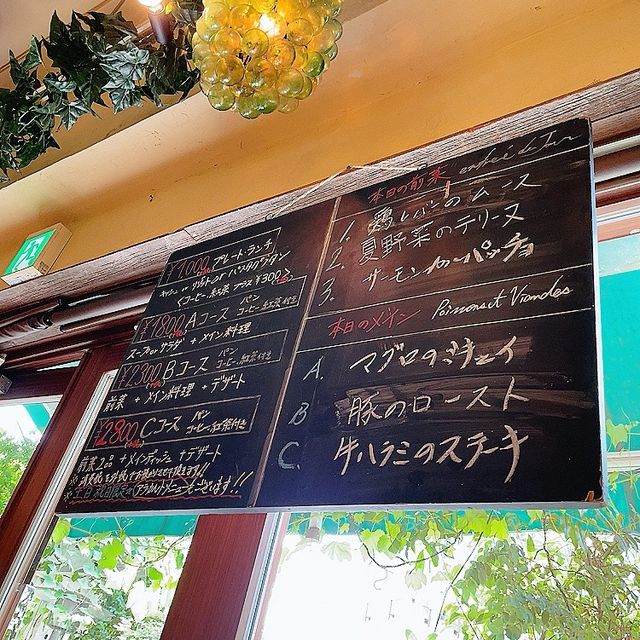 ¥1000 プレートランチ
<コーヒー・紅茶 プラス¥300>
¥1800 Aコース パン コーヒー、紅茶付き
スープ or サラダ + メイン料理
¥2300 Bコース パン コーヒー、紅茶付き
前菜 + メイン料理 + デザート
¥2800 Cコース パン コーヒー、紅茶付き
前菜2品 + メインディッシュ + デザート
※土日祝日限定でアラカルトメニューもございます!!
本日の前菜
1. 鶏レバーのムース
2. 夏野菜のテリーヌ
3. サーモンカルパッチョ
本日のメイン Poissons et Viandes
A. マグロのミキュイ
B 豚のロースト
C. 牛ハラミのステーキ